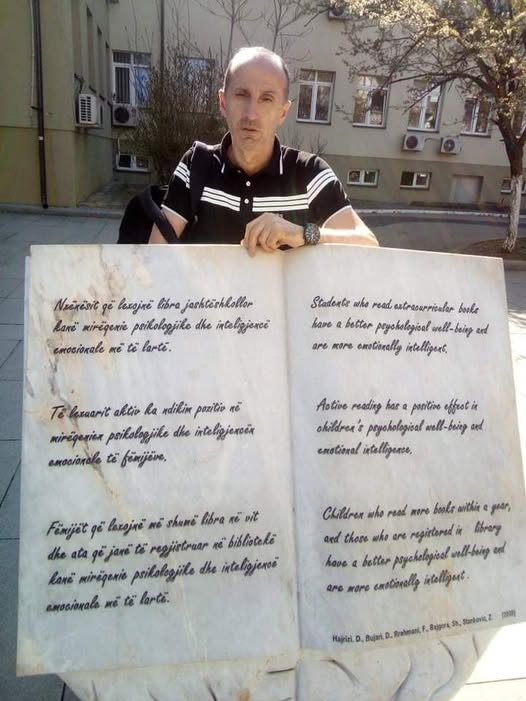 Nxënësit që lexojnë libra jashtëshkollor
kanë mirëqenie psikologjike dhe inteligjencë
emocionale më të lartë.
Të lexuarit aktiv ka ndikim pozitiv në
mirëqenien psikologjike dhe inteligjencën
emocionale të fëmijëve.
Fëmijët që lexojnë më shumë libra në vit
dhe ata që janë të regjistruar në bibliotekë
kanë mirëqenie psikologjike dhe inteligjencë
emocionale më të lartë.
Students who read extracurricular books
have a better psychological well-being and
are more emotionally intelligent.
Active reading has a positive effect in
children's psychological well-being and
emotional intelligence.
Children who read more books within a year,
and those who are registered in library
have a better psychological well-being and
are more emotionally intelligent.
Hajrizi, D., Bujari, D., Rrahmani, F., Bajgora, Sh., Stankovic, Z.